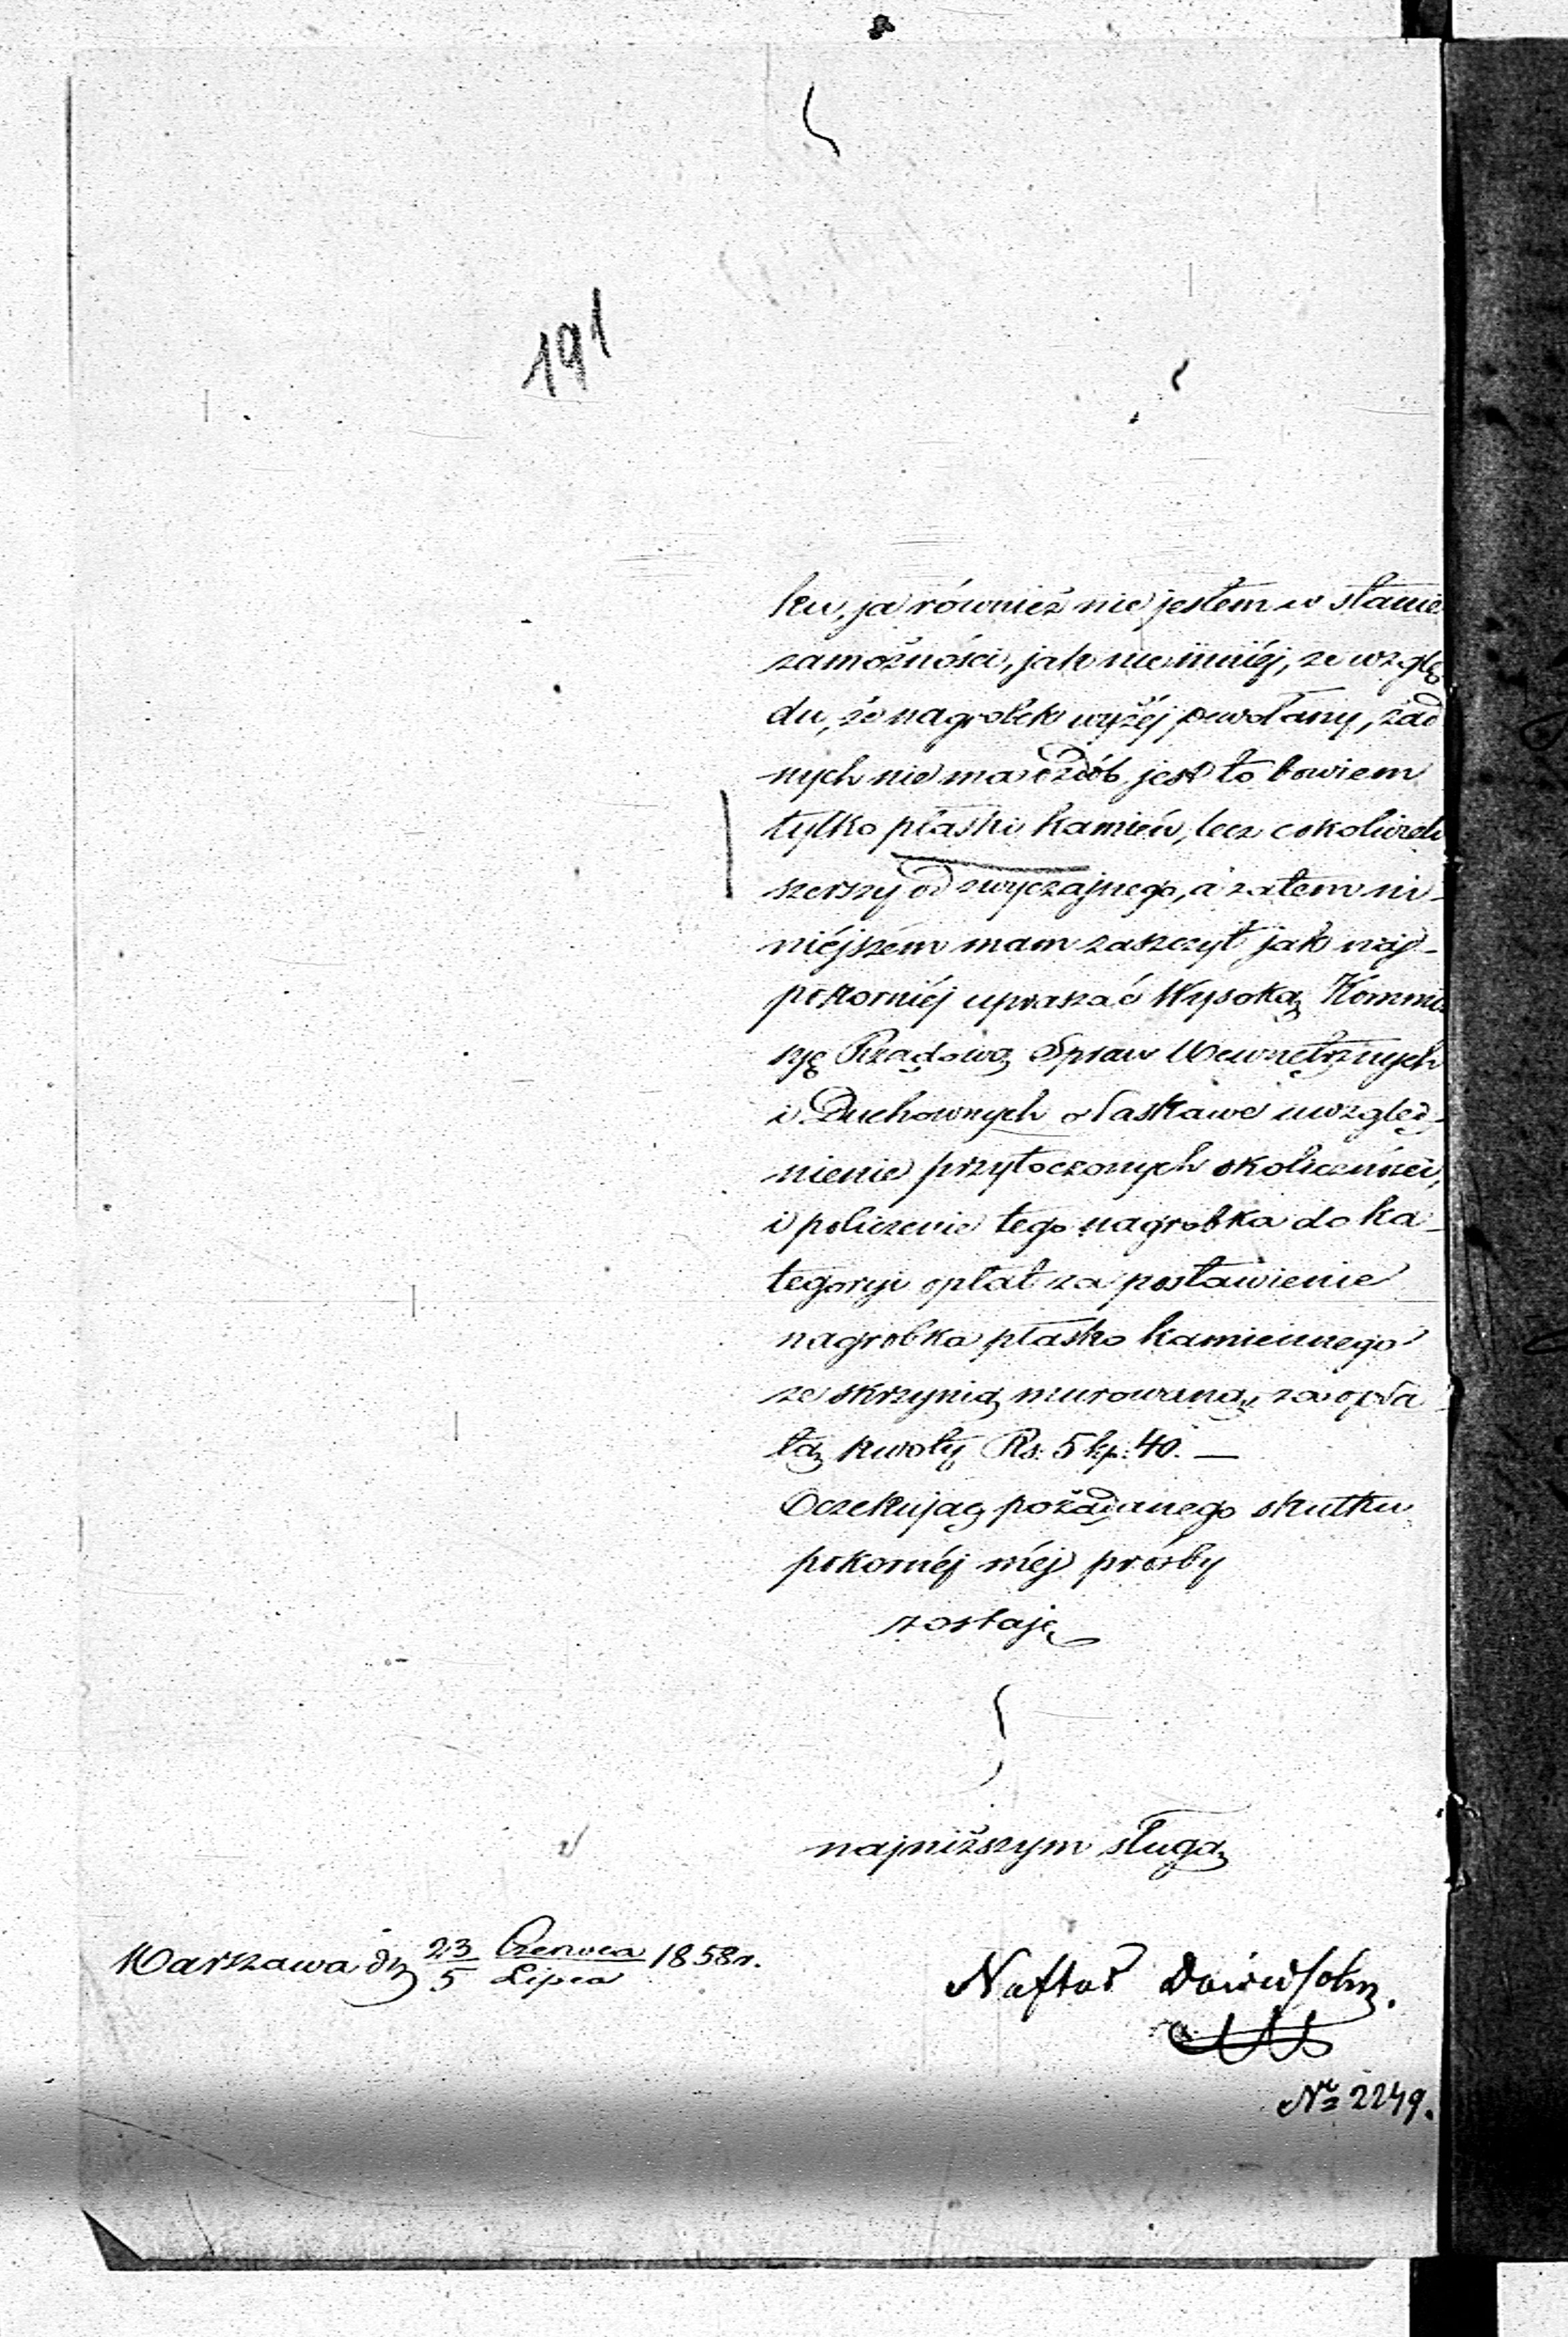 191
ku, ja również nie jestem w stanie
zamożności, jak niemniéj, ze wzglę
du, że nagrobek wyżéj powołany, żad
nych nie ma ozdób, jest to bowiem
tylko płaski kamień, lecz cokolwiek
szerszy od zwyczajnego, a zatem ni-
niéjszém mam zaszczyt jak naj-
pokorniéj upraszać Wysoką Kommis
syę Rządową Spraw Wewnętrznych
i Duchownych o łaskawe uwzględ-
nienie przytoczonych okoliczności,
i policzenie tego nagrobka do ka-
tegoryi opłat za postawienie
nagrobka płasko kamiennego
ze skrzynią murowaną, za opła
tą kwoty Rs: 5 kp: 40. —
Oczekując pożądanego skutku
pokornéj méj prośby
zostaję
najniższym sługą
Warszawa d. 23/5 Czerwca/Lipca 1858 r.
Naftal Dawidsohn.
№ 2249.